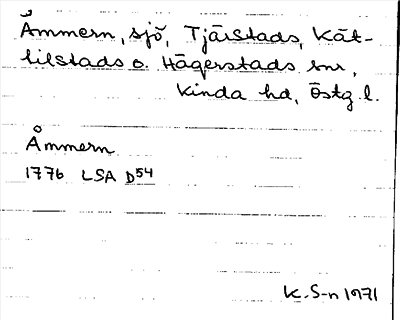 Åmmern, sjö, Tjärstads, Kät-
tilstads o. Hägerstads snr,
Kinda hd, Östg l.
Åmmern
1776 LSA D54
K. S-n 1971